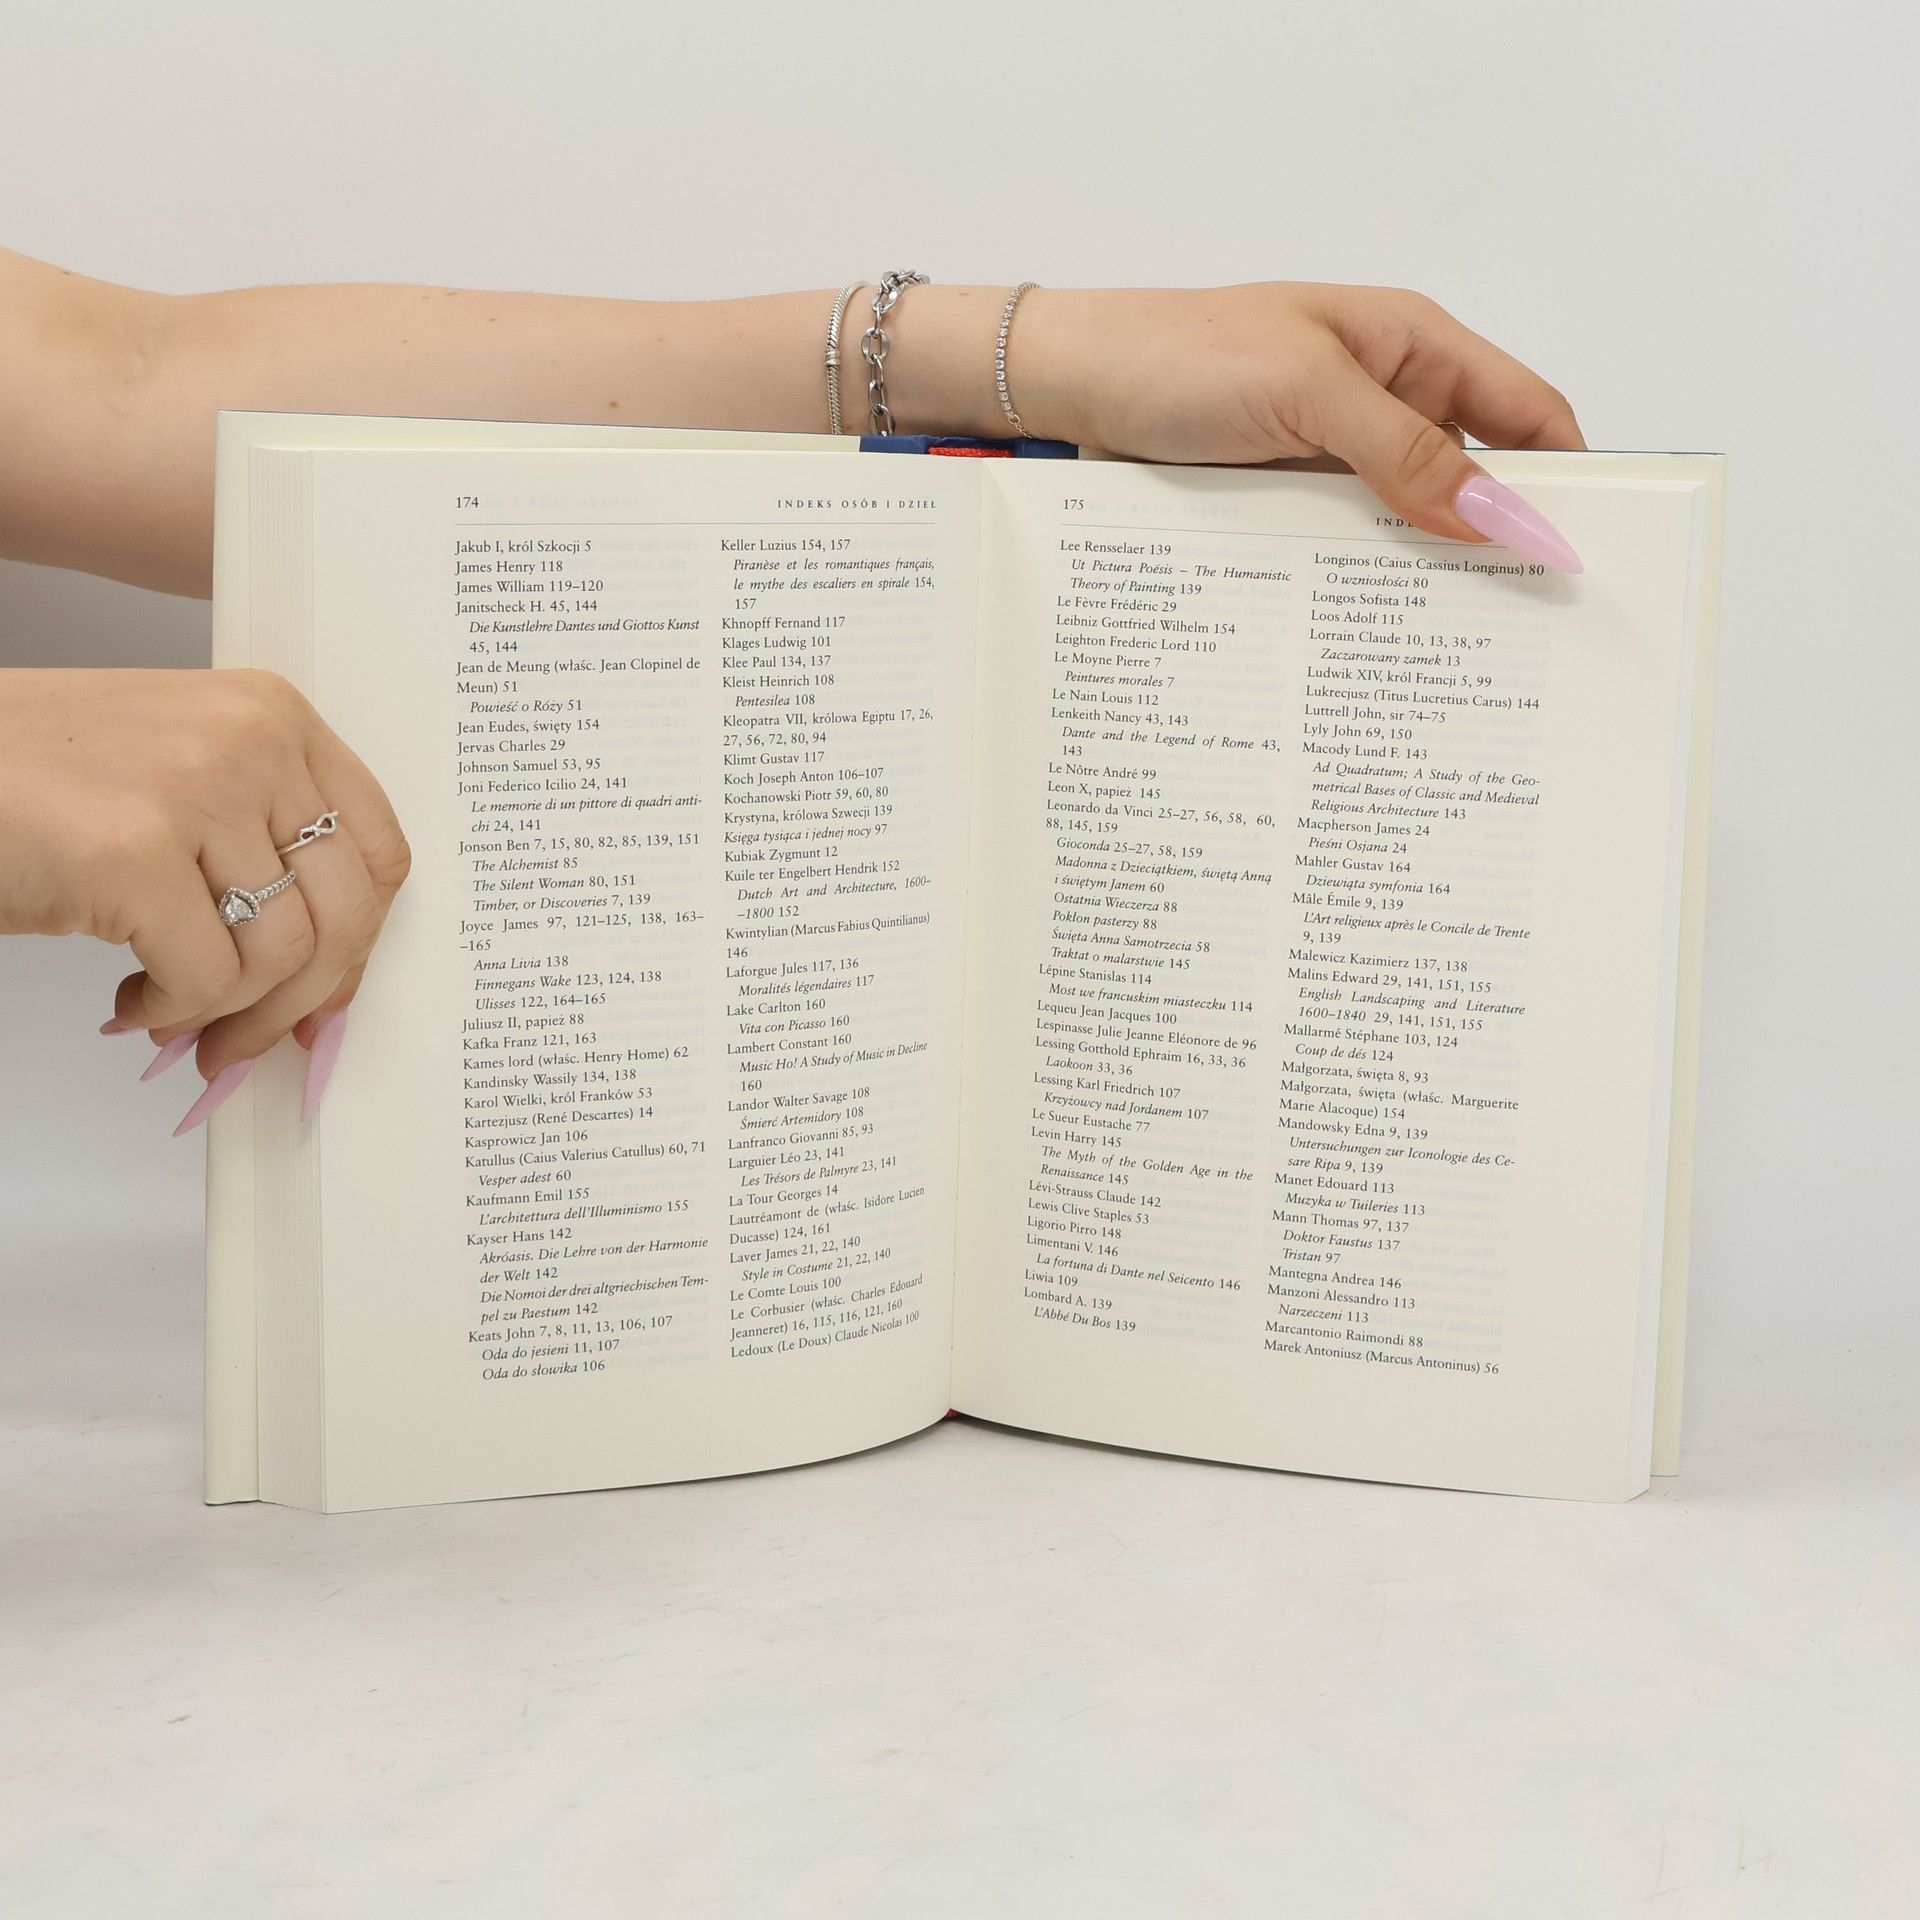 174
INDEKS OSÓB I DZIEŁ
Jakub I, król Szkocji 5
James Henry 118
James William 119–120
Janitscheck H. 45, 144
Die Kunstlehre Dantes und Giottos Kunst
45, 144
Jean de Meung (właśc. Jean Clopinel de
Meun) 51
Powieść o Róży 51
Jean Eudes, święty 154
Jervas Charles 29
Johnson Samuel 53, 95
Joni Federico Icilio 24, 141
Le memorie di un pittore di quadri anti-
chi 24, 141
Jonson Ben 7, 15, 80, 82, 85, 139, 151
The Alchemist 85
The Silent Woman 80, 151
Timber, or Discoveries 7, 139
Joyce James 97, 121–125, 138, 163–
–165
Anna Livia 138
Finnegans Wake 123, 124, 138
Ulisses 122, 164–165
Juliusz II, papież 88
Kafka Franz 121, 163
Kames lord (właśc. Henry Home) 62
Kandinsky Wassily 134, 138
Karol Wielki, król Franków 53
Kartezjusz (René Descartes) 14
Kasprowicz Jan 106
Katullus (Caius Valerius Catullus) 60, 71
Vesper adest 60
Kaufmann Emil 155
L'architettura dell'Illuminismo 155
Kayser Hans 142
Akróasis. Die Lehre von der Harmonie
der Welt 142
Die Nomoi der drei altgriechischen Tem-
pel zu Paestum 142
Keats John 7, 8, 11, 13, 106, 107
Oda do jesieni 11, 107
Oda do słowika 106
Keller Luzius 154, 157
Piranèse et les romantiques français,
le mythe des escaliers en spirale 154,
157
Khnopff Fernand 117
Klages Ludwig 101
Klee Paul 134, 137
Kleist Heinrich 108
Pentesilea 108
Kleopatra VII, królowa Egiptu 17, 26,
27, 56, 72, 80, 94
Klimt Gustav 117
Koch Joseph Anton 106–107
Kochanowski Piotr 59, 60, 80
Krystyna, królowa Szwecji 139
Księga tysiąca i jednej nocy 97
Kubiak Zygmunt 12
Kuile ter Engelbert Hendrik 152
Dutch Art and Architecture, 1600–
–1800 152
Kwintylian (Marcus Fabius Quintilianus)
146
Laforgue Jules 117, 136
Moralités légendaires 117
Lake Carlton 160
Vita con Picasso 160
Lambert Constant 160
Music Ho! A Study of Music in Decline
160
Landor Walter Savage 108
Śmierć Artemidory 108
Lanfranco Giovanni 85, 93
Larguier Léo 23, 141
Les Trésors de Palmyre 23, 141
La Tour Georges 14
Lautréamont de (właśc. Isidore Lucien
Ducasse) 124, 161
Laver James 21, 22, 140
Style in Costume 21, 22, 140
Le Comte Louis 100
Le Corbusier (właśc. Charles Edouard
Jeanneret) 16, 115, 116, 121, 160
Ledoux (Le Doux) Claude Nicolas 100
175
Lee Rensselaer 139
Ut Pictura Poësis – The Humanistic
Theory of Painting 139
Le Fèvre Frédéric 29
Leibniz Gottfried Wilhelm 154
Leighton Frederic Lord 110
Le Moyne Pierre 7
Peintures morales 7
Le Nain Louis 112
Lenkeith Nancy 43, 143
Dante and the Legend of Rome 43,
143
Le Nôtre André 99
Leon X, papież 145
Leonardo da Vinci 25–27, 56, 58, 60,
88, 145, 159
Gioconda 25–27, 58, 159
Madonna z Dzieciątkiem, świętą Anną
i świętym Janem 60
Ostatnia Wieczerza 88
Pokłon pasterzy 88
Święta Anna Samotrzecia 58
Traktat o malarstwie 145
Lépine Stanislas 114
Most we francuskim miasteczku 114
Lequeu Jean Jacques 100
Lespinasse Julie Jeanne Eléonore de 96
Lessing Gotthold Ephraim 16, 33, 36
Laokoon 33, 36
Lessing Karl Friedrich 107
Krzyżowcy nad Jordanem 107
Le Sueur Eustache 77
Levin Harry 145
The Myth of the Golden Age in the
Renaissance 145
Lévi-Strauss Claude 142
Lewis Clive Staples 53
Ligorio Pirro 148
Limentani V. 146
La fortuna di Dante nel Seicento 146
Liwia 109
Lombard A. 139
L'Abbé Du Bos 139
Longinos (Caius Cassius Longinus) 80
O wzniosłości 80
Longos Sofista 148
Loos Adolf 115
Lorrain Claude 10, 13, 38, 97
Zaczarowany zamek 13
Ludwik XIV, król Francji 5, 99
Lukrecjusz (Titus Lucretius Carus) 144
Luttrell John, sir 74–75
Lyly John 69, 150
Macody Lund F. 143
Ad Quadratum; A Study of the Geo-
metrical Bases of Classic and Medieval
Religious Architecture 143
Macpherson James 24
Pieśni Osjana 24
Mahler Gustav 164
Dziewiąta symfonia 164
Mâle Émile 9, 139
L'Art religieux après le Concile de Trente
9, 139
Malewicz Kazimierz 137, 138
Malins Edward 29, 141, 151, 155
English Landscaping and Literature
1600–1840 29, 141, 151, 155
Mallarmé Stéphane 103, 124
Coup de dés 124
Małgorzata, święta 8, 93
Małgorzata, święta (właśc. Marguerite
Marie Alacoque) 154
Mandowsky Edna 9, 139
Untersuchungen zur Iconologie des Ce-
sare Ripa 9, 139
Manet Edouard 113
Muzyka w Tuileries 113
Mann Thomas 97, 137
Doktor Faustus 137
Tristan 97
Mantegna Andrea 146
Manzoni Alessandro 113
Narzeczeni 113
Marcantonio Raimondi 88
Marek Antoniusz (Marcus Antoninus) 56